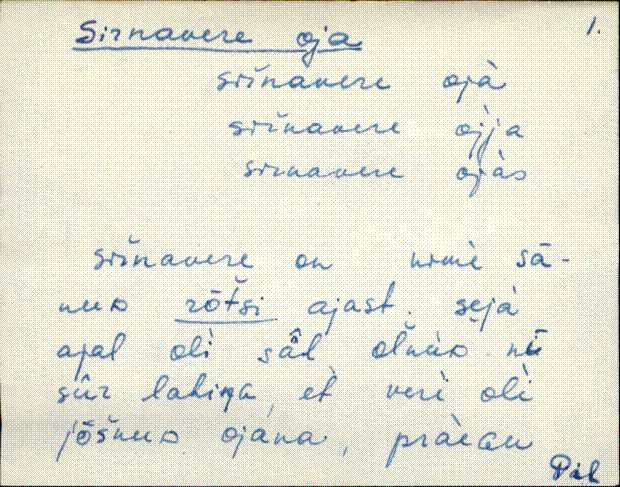 Sirnavere oja 1.
siŕnavere ojà
siŕnavere òjja
sirnavere ojàs
siŕnavere on nimè sā-
nus rōt̆si ajast. sejà
ajal olì sâl olnùs nī
sûr lahiŋa, et verì olì
jōšnus ojàna, pràegu
Pil